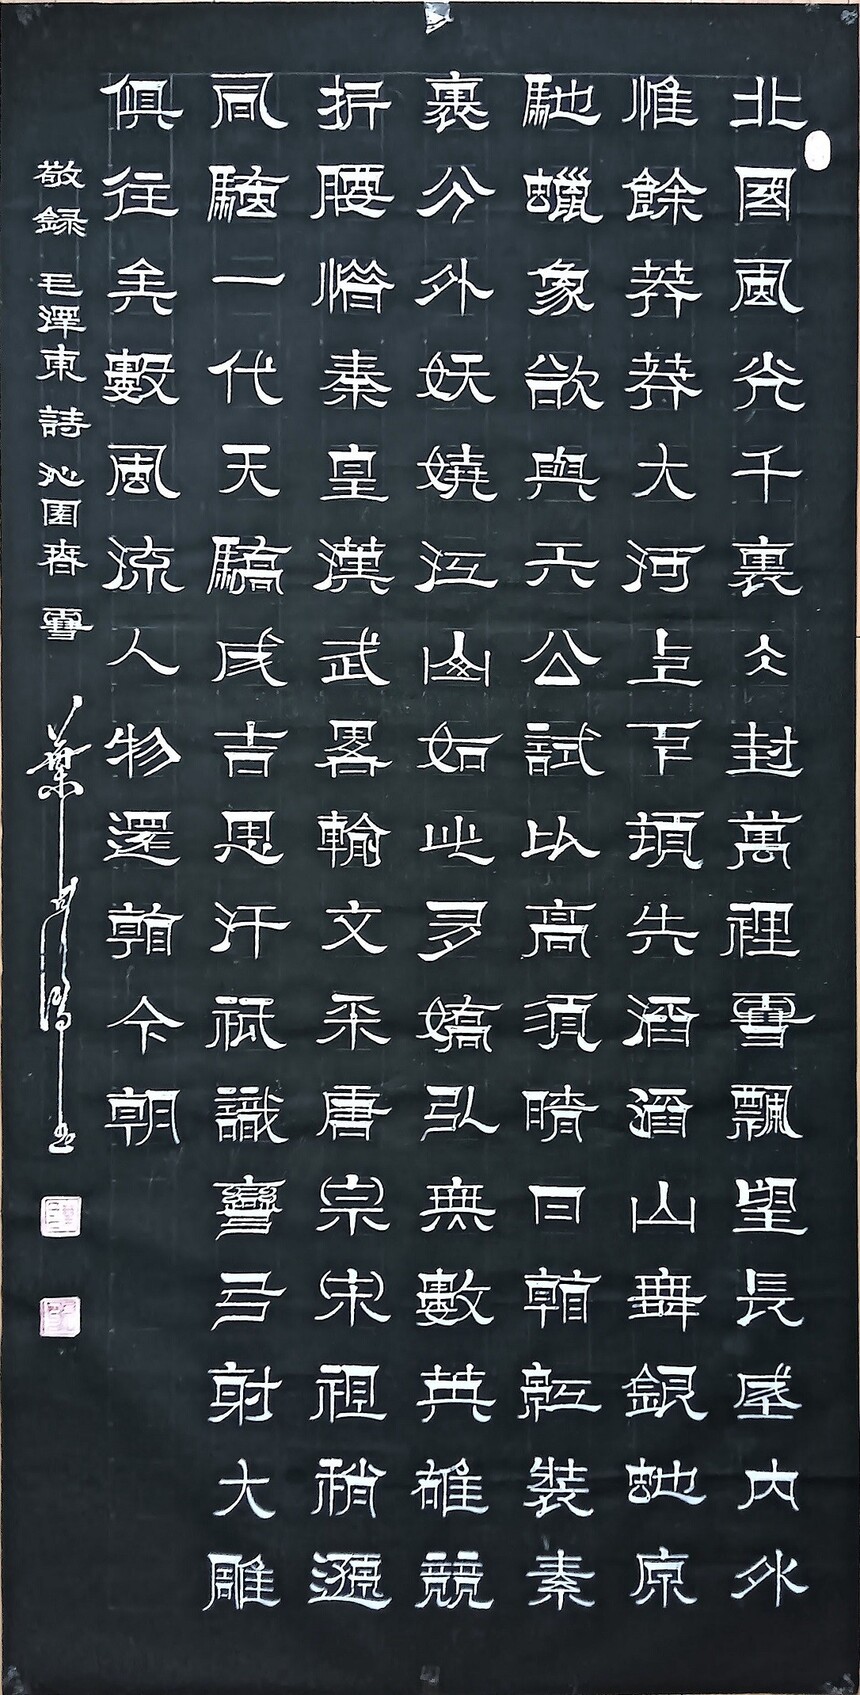 北國風光千裏仌封萬裡雪飄望長城內外
惟餘莽莽大河上下頓失滔滔山舞銀蛇原
馳蠟象欲與天公試比高須晴日看紅裝素
裹分外妖嬈江山如此多嬌引無數英雄競
折腰惜秦皇漢武畧輸文采唐宗宋祖稍遜
風騷一代天驕成吉思汗祇識彎弓射大雕
俱往矣數風流人物還看今朝
敬録 毛澤東詩 沁園春 雪 葉